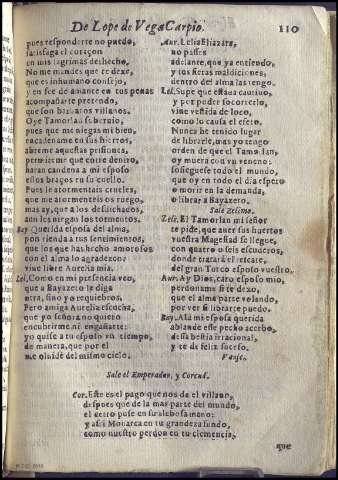 De Lope de Vega Carpio. 110
pues responderte no puedo,
satisfaga el coraçon
en mis lagrimas deshecho,
No me mandes que te dexe,
que es inhumano consejo,
y en fee de amante en tus penas
acompañarte pretendo,
que son barbaros villanos.
Oye Tamorlan soberuio,
pues que me niegas mi bien,
encadename en sus hierros,
abreme aquestas prisiones,
permiteme que entre dentro,
haran cadena a mi esposo
estos braços en su cuello.
Pues le atormentais crueles,
que me atormenteis os ruego,
mas ay, que a los desdichados
aun les niegan los tormentos.
Bay. Querida esposa del alma,
pon rienda a tus sentimientos,
que los que has hecho amorosos
con el alma lo agradezco:
viue libre Aurelia mia.
Lel. Como en mi presencia veo,
que a Bayazeto le diga
otra, sino yo requiebros.
Pero amiga Aurelia escucha,
que yo señora no quiero
encubrirme ni engañarte:
yo quise a tu esposo un tiempo,
de manera, que por el
me oluidè del mismo cielo.
Aur. Lelia Eliazara,
no passes
adelante, que ya entiendo,
y tus fieras maldiciones,
dentro del alma las tengo.
Lel. Supe que estaua cautiuo,
y por poder socorrerlo,
vine vestida de loco,
como lo causa el efeto.
Nunca he tenido lugar
de librarle, mas yo tengo
orden de que el Tamorlan,
oy muera con vn veneno:
sossieguese todo el mundo,
que oy en todo el dia espero
o morir en la demanda,
o librar a Bayazeto.
Sale Zelimo.
Zeli. El Tamorlan mi señor
te pide, que auer sus huertos
vuestra Magestad se llegue,
con quatro o seis escuderos,
donde tratarà el rescate,
del gran Turco esposo vuestro.
Aur. Ay Dios, caro esposo mio,
perdoname si te dexo,
que el alma parte volando,
por ver si librarte puedo.
Bay. Alà mi esposa querida
ablande esse pecho acerbo,
desta bestia irracional,
y te dè feliz sucesso.
Vanse.
Sale el Emperador, y Corcud.
Cor. Este es el pago que nos dà el villano,
despues que de la mas parte del mundo,
el cetro puse en su aleuosa mano:
y assi Monarca en tu grandeza fundo,
como nuestro perdon en tu clemencia,
que